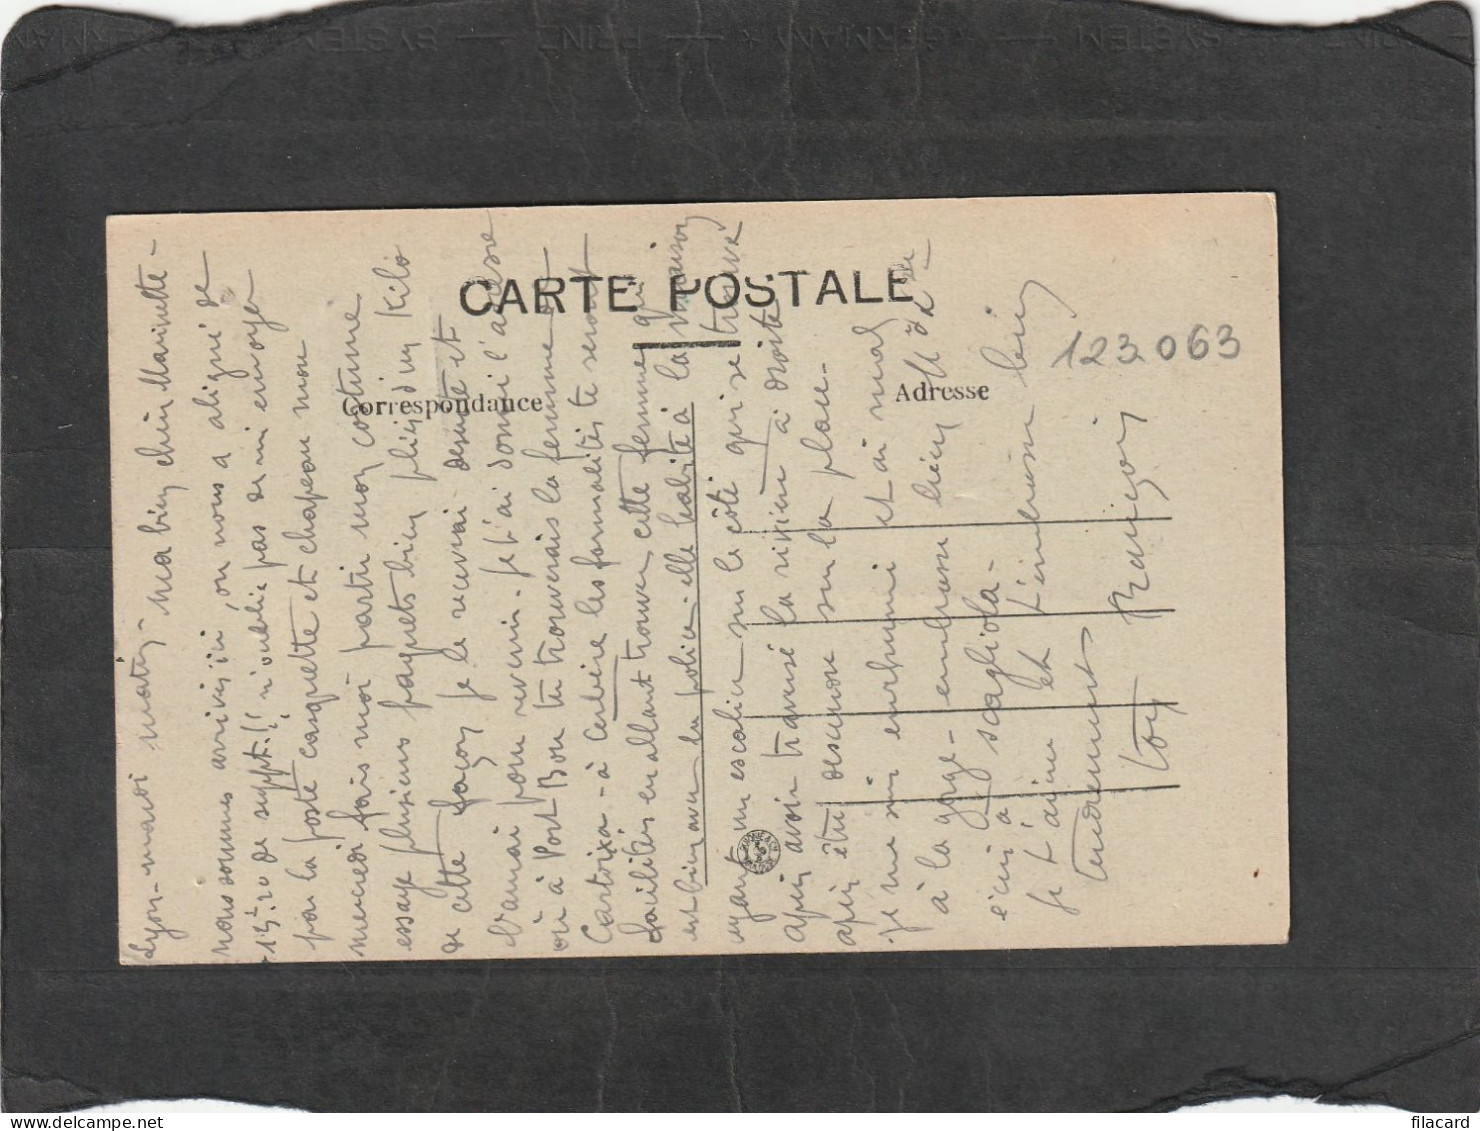 Lyon - mardi matin - ma bien chère Mariette -
nous sommes arrivés ici, on nous a aligné de
+ 15 - 20 de suppt.!! n'oublie pas de m'envoyer
par la poste casquette et chapeau mou
mercredi fais moi partir mon costume
essaye plusieurs paquets bien pliés d'un kilo
de cette façon je le recevrai de suite et
l'aurai pour revenir. je t'ai donné l'adresse
où à Port Bou tu trouverais la femme
Cartoixa - à Cerbère les formalités te seront
facilités en allant trouver cette femme qui
est bien avec la police - elle habite à la maison
ayant un escalier sur le côté qui se trouve
après avoir traversé la rivière à droite
après être descendre sur la place -
je me suis enrhumé et ai mal
à la gorge - embrasse bien M et Me
écris à Scagliola -
je t'aime et t'embrasse bien
tendrement
Ton François
CARTE POSTALE
Correspondance
Adresse
123063
PRINT SYSTEM GERMANY
filacard